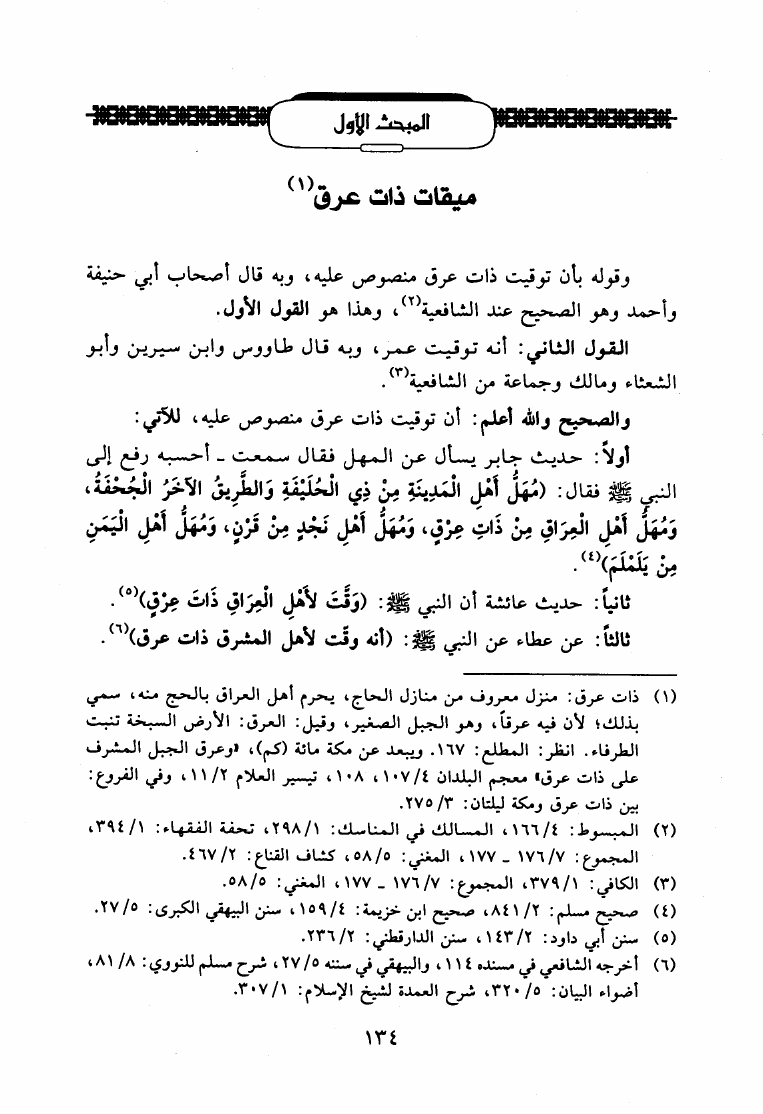 المبحث الأول
ميقات ذات عرق(١)
وقوله بأن توقيت ذات عرق منصوص عليه، وبه قال أصحاب أبي حنيفة
وأحمد وهو الصحيح عند الشافعية(٢)، وهذا هو القول الأول.
القول الثاني: أنه توقيت عمر، وبه قال طاووس وابن سيرين وأبو
الشعثاء ومالك وجماعة من الشافعية(٣).
والصحيح والله أعلم: أن توقيت ذات عرق منصوص عليه، للآتي:
أولاً: حديث جابر يسأل عن المهل فقال سمعت ـ أحسبه رفع إلى
النبي ﷺ فقال: (مُهَلُّ أَهْلِ الْمَدِينَةِ مِنْ ذِي الْحُلَيْفَةِ وَالطَّرِيقُ الآخَرُ الْجُحْفَةُ،
وَمُهَلُّ أَهْلِ الْعِرَاقِ مِنْ ذَاتِ عِرْقٍ، وَمُهَلُّ أَهْلِ نَجْدٍ مِنْ قَرْنٍ، وَمُهَلُّ أَهْلِ الْيَمَنِ
مِنْ يَلَمْلَمَ)(٤).
ثانياً: حديث عائشة أن النبي ﷺ: (وَقَّتَ لأَهْلِ الْعِرَاقِ ذَاتَ عِرْقٍ)(٥).
ثالثاً: عن عطاء عن النبي ﷺ: (أنه وقّت لأهل المشرق ذات عرق)(٦).
(١) ذات عرق: منزل معروف من منازل الحاج، يحرم أهل العراق بالحج منه، سمي
بذلك؛ لأن فيه عرقاً، وهو الجبل الصغير، وقيل: العرق: الأرض السبخة تنبت
الطرفاء. انظر: المطلع: ١٦٧. ويبعد عن مكة مائة (كم)، «وعرق الجبل المشرف
على ذات عرق» معجم البلدان ١٠٧/٤، ١٠٨، تيسير العلام ١١/٢، وفي الفروع:
بين ذات عرق ومكة ليلتان: ٢٧٥/٣.
(٢) المبسوط: ١٦٦/٤، المسالك في المناسك: ٢٩٨/١، تحفة الفقهاء: ٣٩٤/١،
المجموع: ١٧٦/٧ ـ ١٧٧، المغني: ٥٨/٥، كشاف القناع: ٤٦٧/٢.
(٣) الكافي: ٣٧٩/١، المجموع: ١٧٦/٧ ـ ١٧٧، المغني: ٥٨/٥.
(٤) صحيح مسلم: ٨٤١/٢، صحيح ابن خزيمة: ١٥٩/٤، سنن البيهقي الكبرى: ٢٧/٥.
(٥) سنن أبي داود: ١٤٣/٢، سنن الدارقطني: ٢٣٦/٢.
(٦) أخرجه الشافعي في مسنده ١١٤، والبيهقي في سننه ٢٧/٥، شرح مسلم للنووي: ٨١/٨،
أضواء البيان: ٣٢٠/٥، شرح العمدة لشيخ الإسلام: ٣٠٧/١.
١٣٤